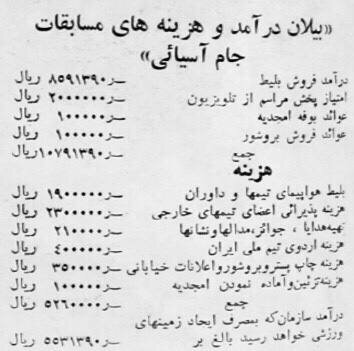 «بیلان درآمد و هزینه های مسابقات
جام آسیائی»
درآمد فروش بلیط ۸۵۹۱۳۹۰ر ریال
امتیاز پخش مراسم از تلویزیون ۲۰۰۰۰۰۰ر ریال
عوائد بوفه امجدیه ۱۰۰۰۰۰ر ریال
عوائد فروش بروشور ۱۰۰۰۰۰ر ریال
جمع ۱۰۷۹۱۳۹۰ر ریال
هزینه
بلیط هواپیمای تیمها و داوران ۱۹۰۰۰۰۰ر ریال
هزینه پذیرائی اعضای تیمهای خارجی ۲۳۰۰۰۰۰ر ریال
تهیه هدایا ، جوائز، مدالها و نشانها ۲۱۰۰۰۰ر ریال
هزینه اردوی تیم ملی ایران ۴۰۰۰۰۰ر ریال
هزینه چاپ پستر و بروشور و اعلانات خیابانی ۳۵۰۰۰۰ر ریال
هزینه تزئین و آماده نمودن امجدیه ۱۰۰۰۰۰ر ریال
جمع ۵۲۶۰۰۰۰ر ریال
درآمد سازمان که بمصرف ایجاد زمینهای
ورزشی خواهد رسید بالغ بر ۵۵۳۱۳۹۰ر ریال